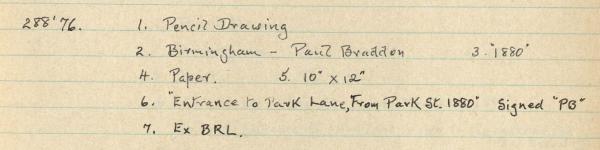 288'76. 1. Pencil Drawing
2. Birmingham - Paul Braddon 3. "1880"
4. Paper. 5. 10" x 12"
6. "Entrance to Park Lane, From Park St. 1880" Signed "PB"
7. Ex BRL.